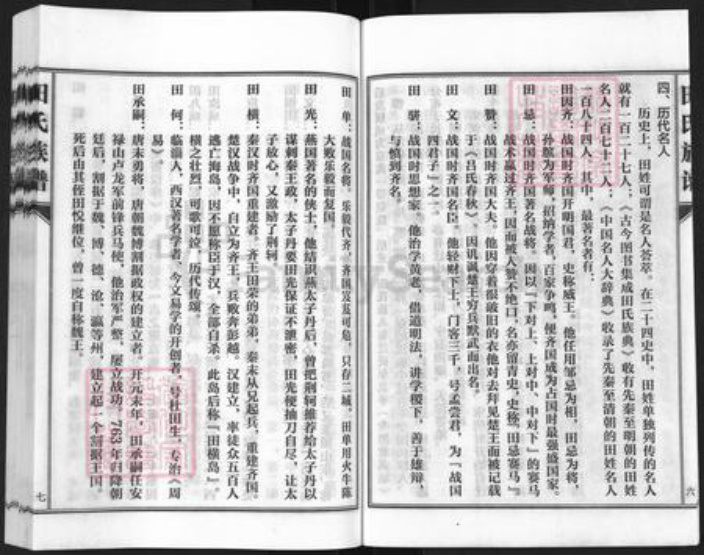 田氏族谱
四、历代名人
历史上，田姓可谓是名人荟萃。在二十四史中，田姓单独列传的名人
就有一百二十七人；《古今图书集成田氏族典》收有先秦至明朝的田姓
名人二百七十二人；《中国名人大辞典》收录了先秦至清朝的田姓名人
一百八十四人，其中，最著名者有：
田因齐：战国时齐国开明国君，史称威王。他任用邹忌为相，田忌为将，
孙膑为军师，招纳学者，百家争鸣，使齐国成为占国时最强盛国家。
田 忌：战国时齐国著名战将。因以「下对上、上对中、中对下」的赛马
战术赢过齐王，因而被人赞不绝口，名亦留青史，史称「田忌赛马」。
田 赞：战国时齐国大夫。他因穿着很破旧的衣他对去拜见楚王而被记载
于《吕氏春秋》，因讥讽楚王穷兵默武而出名。
田 文：战国时齐国名臣，他轻财下士，门客三千，号孟尝君，为「战国
四君子」之一。
田 骈：战国时思想家。他治学黄老，借道明法，讲学稷下，善于雄辩，
与慎到齐名。
六
田 单：战国名将，乐毅代齐，齐国岌岌可危，只存二城，田单用火牛陈
大败乐毅而复国
田 光：燕国著名的侠士，他结识燕太子丹后，曾把荆轲推荐给太子丹以
谋刺秦王政，太子丹要田光保证不泄密，田光便抽刀自尽，让太
子放心，又激励了荆轲
田 横：秦汉时齐国重建者。齐王田荣的弟弟，秦末从兄起兵，重建齐国。
楚汉战争中，自立为齐王，兵败奔彭越。汉建立，率徒众五百人
逃亡海岛，因不愿称臣于汉，全部自杀。此岛后称「田横岛」。
横之壮烈，可歌可泣，历代传颂。
田 何：临淄人，西汉著名学者，今文易学的开创者，号杜田生，专治《周
易》
田承嗣：唐末勇将，唐朝魏博割据政权的建立者。开元末年，田承嗣任安
禄山卢龙军前锋兵马使，他治军严整，屡立战功。763年归降朝
廷后，割据于魏、博、德、沧、瀛等州，建立起一个割据王国。
死后由其侄田悦继位，曾一度自称魏王。
田氏族谱
七